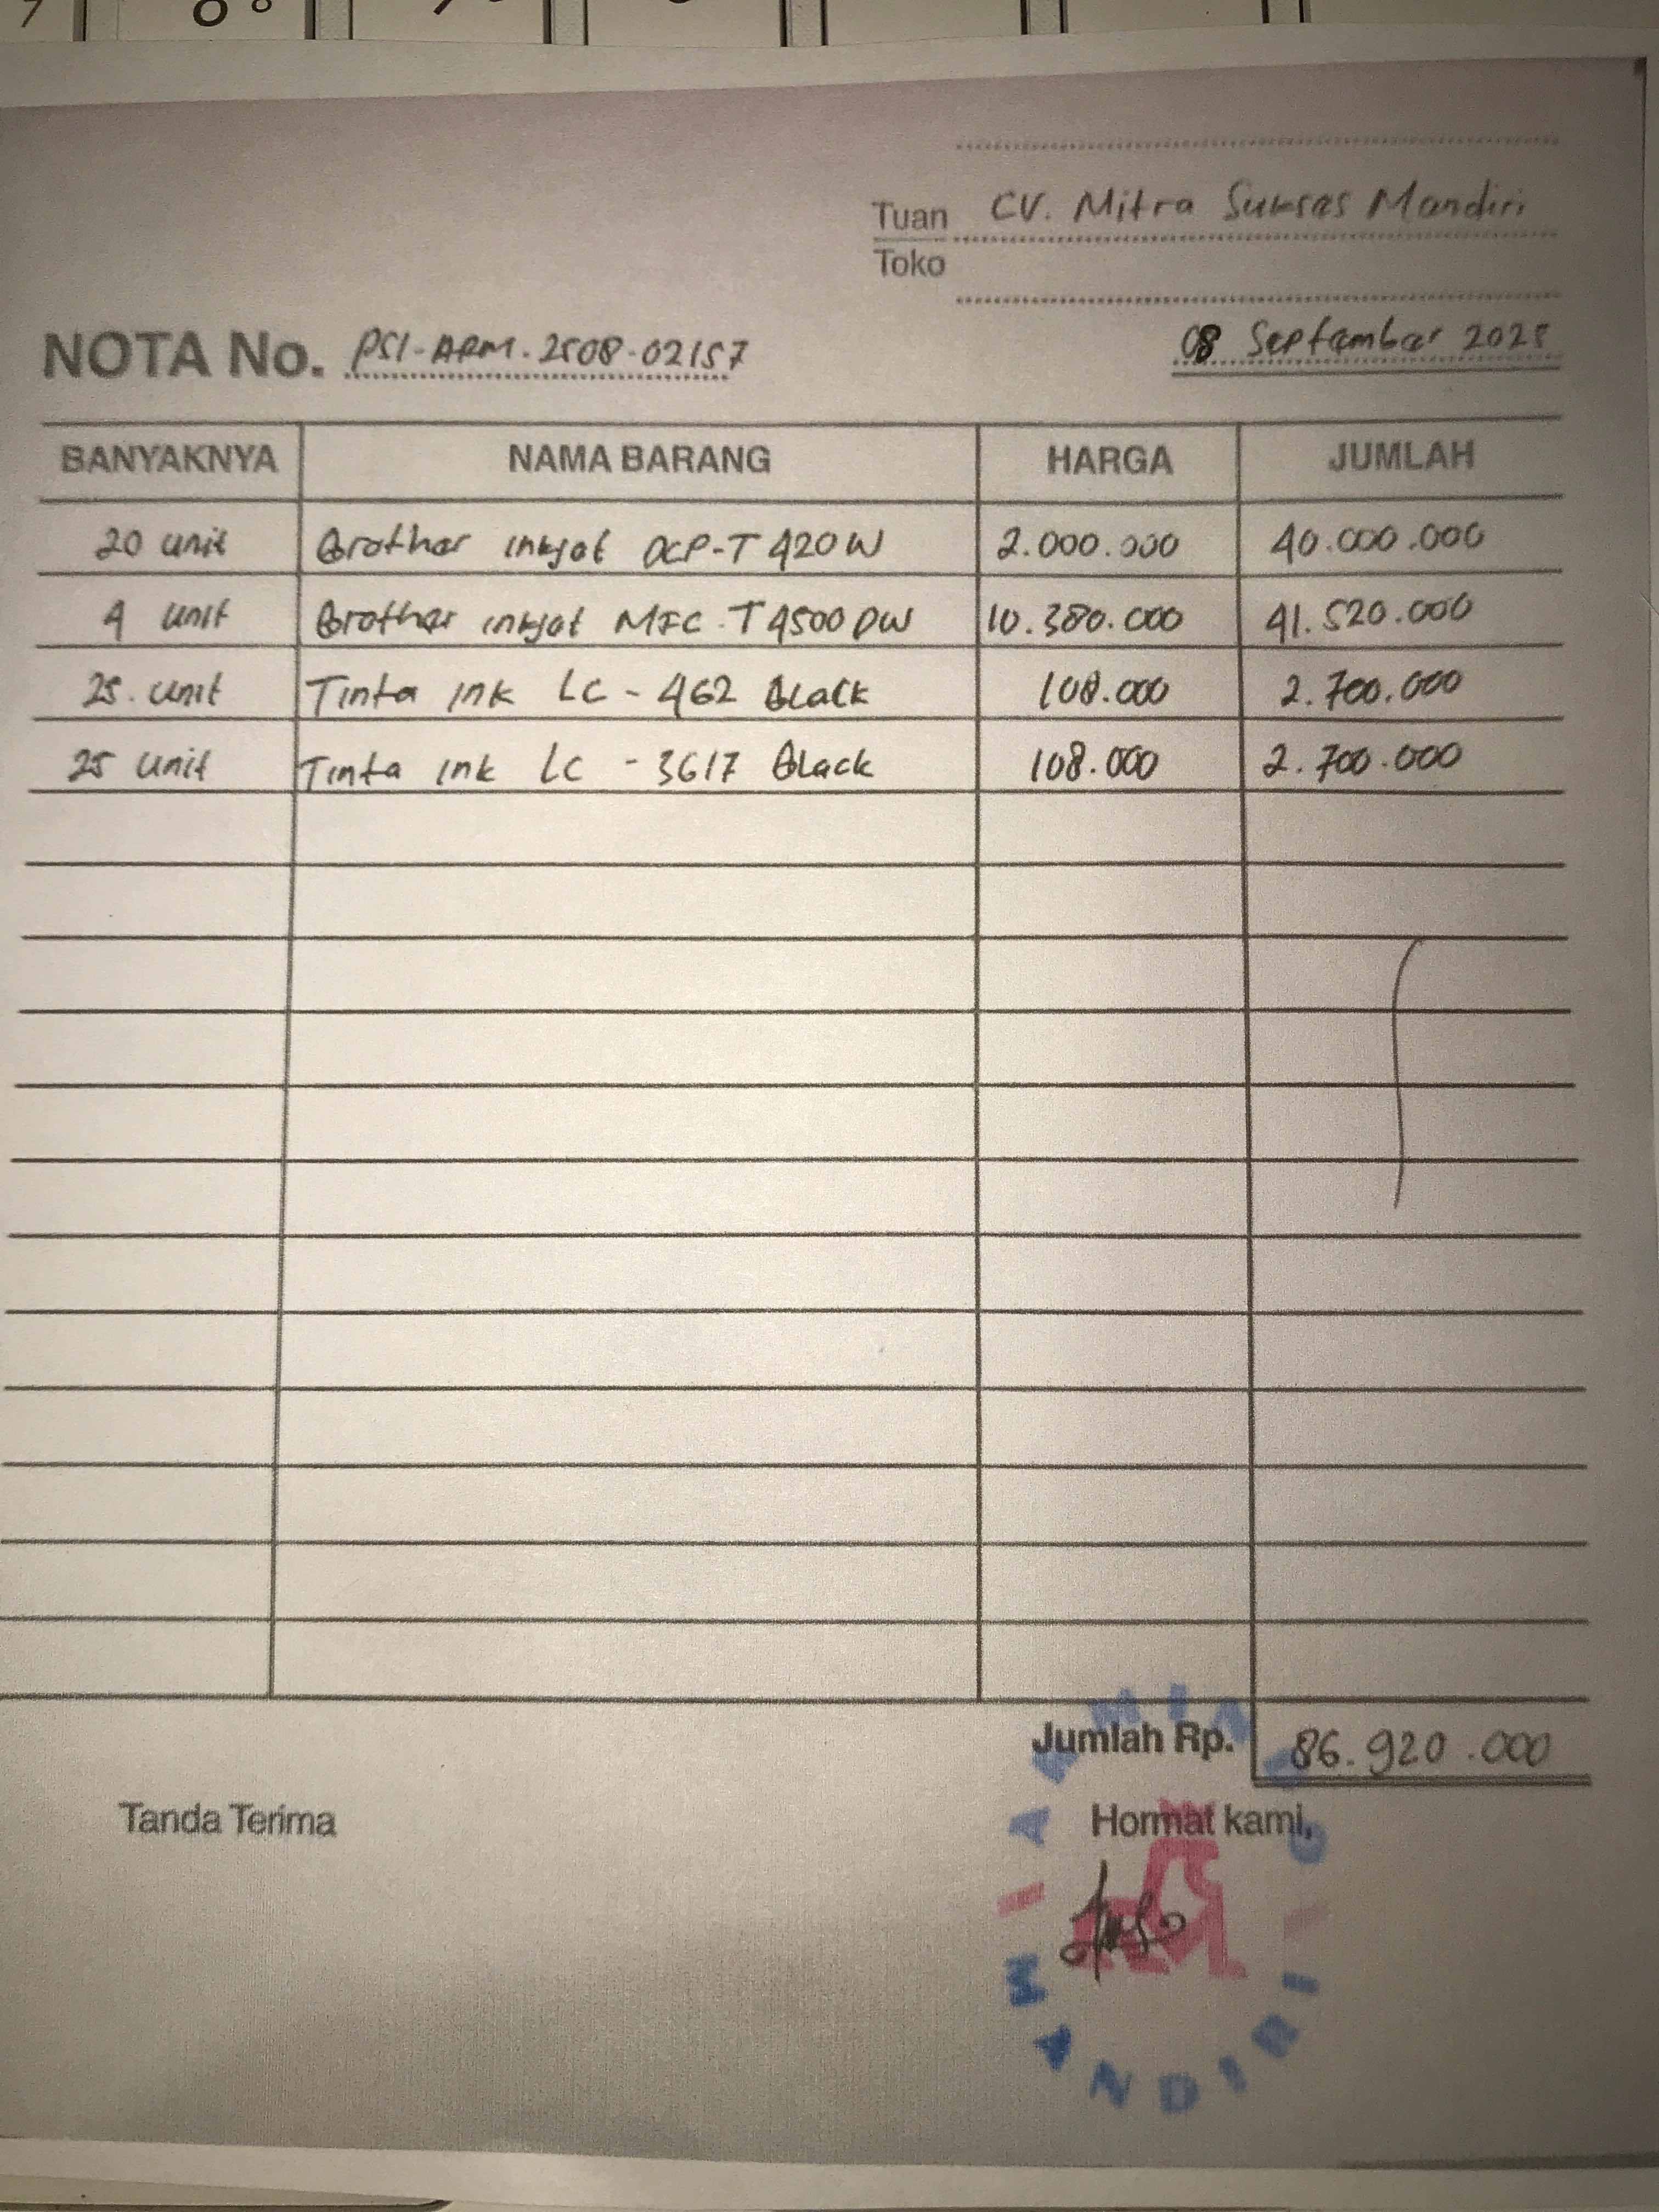 Tuan CV. Mitra Sukses Mandiri
Toko
NOTA No. PSI-ARM.2508-02157
08 September 2025
BANYAKNYA NAMA BARANG HARGA JUMLAH
20 unit Brother inkjet DCP-T420W 2.000.000 40.000.000
4 unit Brother inkjet MFC-T4500DW 10.380.000 41.520.000
25 unit Tinta ink LC - 462 Black 108.000 2.700.000
25 unit Tinta ink LC - 3617 Black 108.000 2.700.000
Jumlah Rp. 86.920.000
Tanda Terima Hormat kami,
MANDIRI